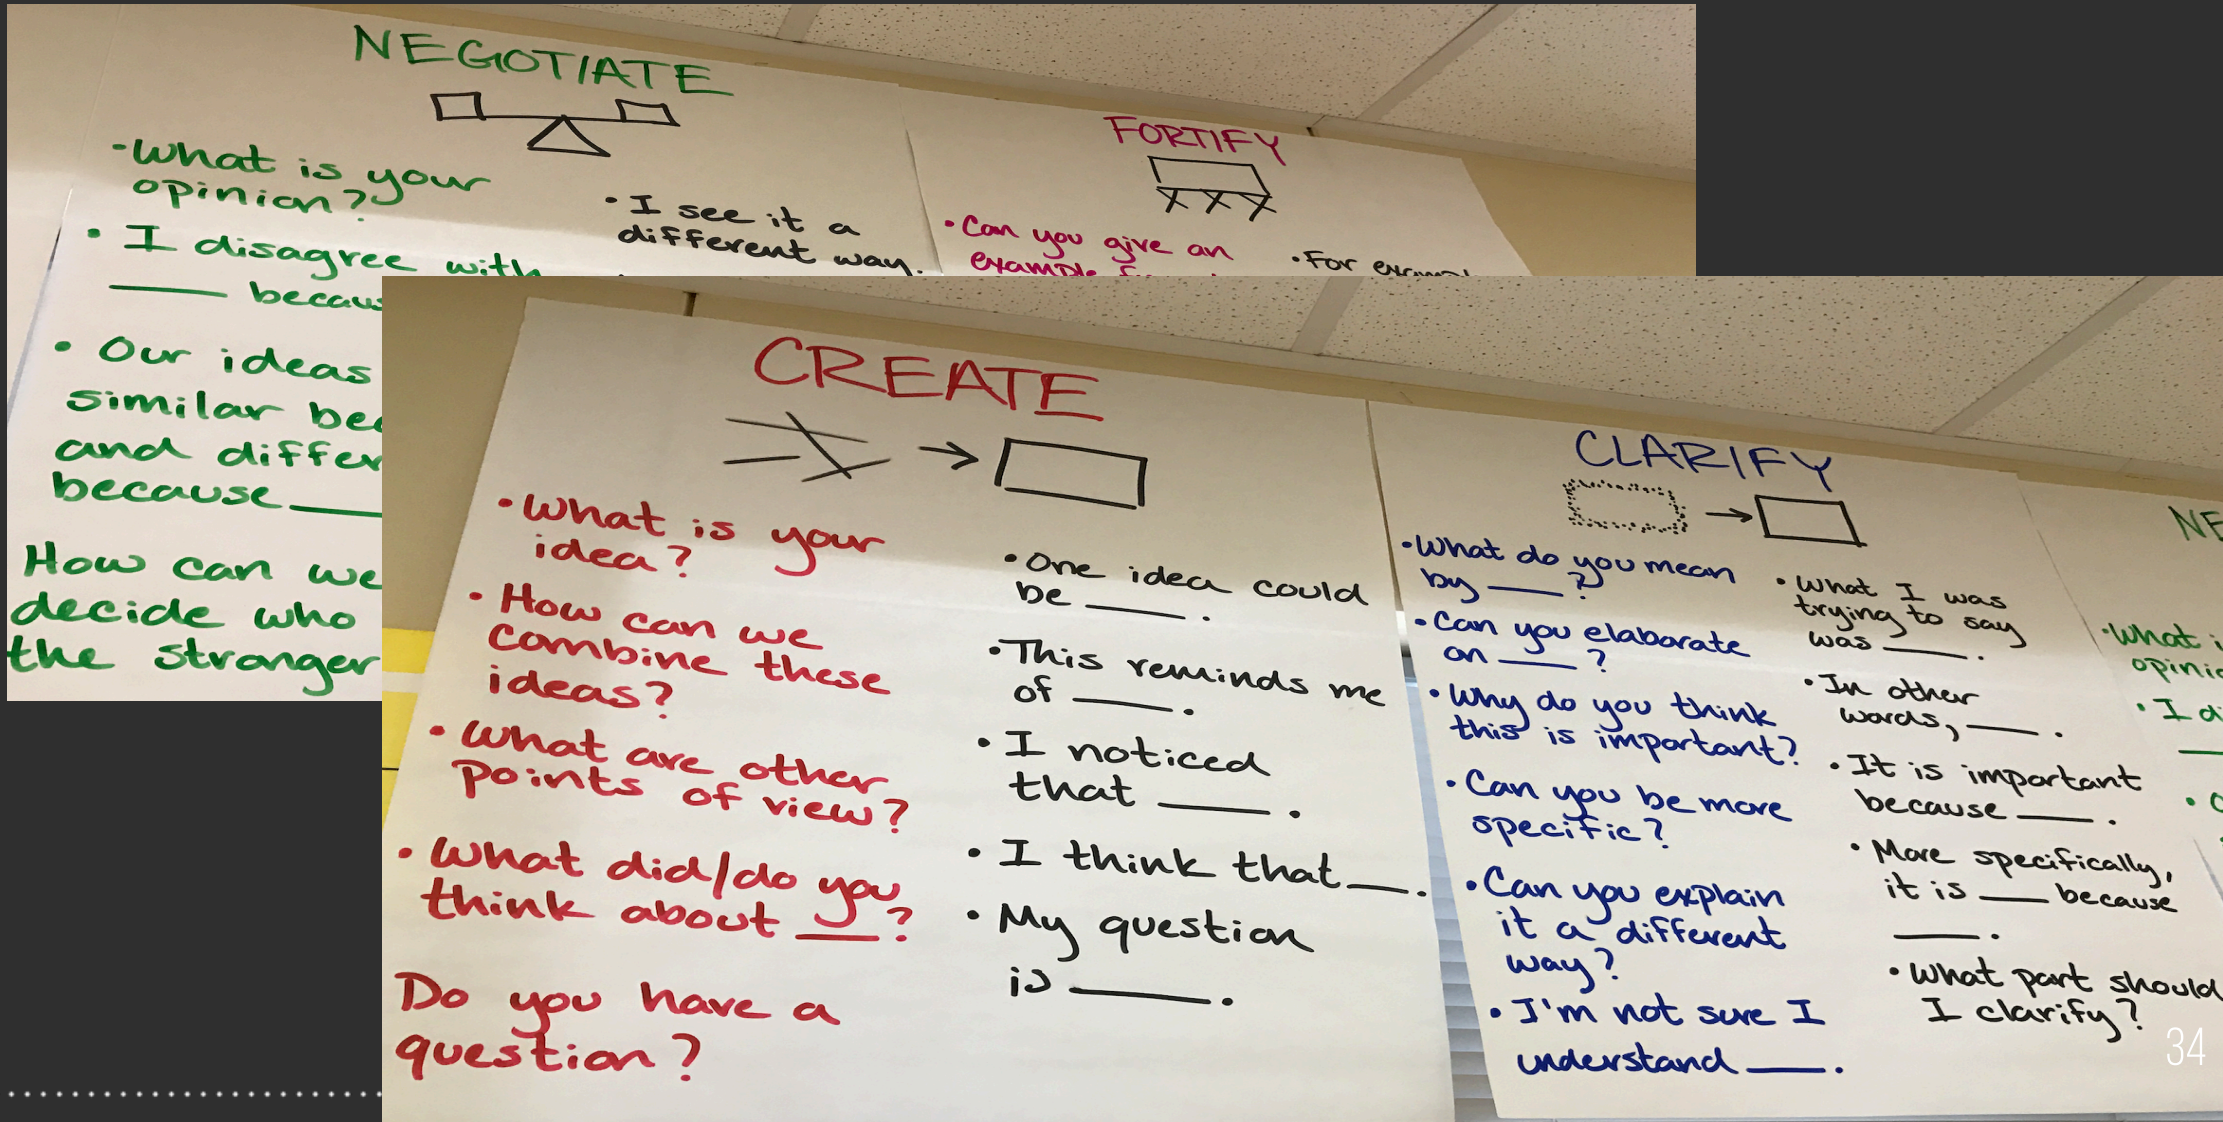 NEGOTIATE
•What is your
opinion?
• I disagree with
____ becau
• Our ideas
similar be
and differ
because____
How can we
decide who
the stranger
• I see it a
different way.
FORTIFY
•Can you give an
example
•For
CREATE
•What is your
idea?
• How can we
combine these
ideas?
• What are other
points of view?
• What did/do you
think about ___?
Do you have a
question?
•One idea could
be ____.
•This reminds me
of ____.
• I noticed
that ____.
• I think that___.
• My question
is ____.
CLARIFY
•What do you mean
by ____?
•Can you elaborate
on ____?
•Why do you think
this is important?
•Can you be more
specific?
•Can you explain
it a different
way?
• I'm not sure I
understand ____.
•What I was
trying to say
was ____.
•In other
words, ____.
•It is important
because ____.
•More specifically,
it is ____ because
____.
•What part should
I clarify?
NE
•What i
opinio
•I di
34